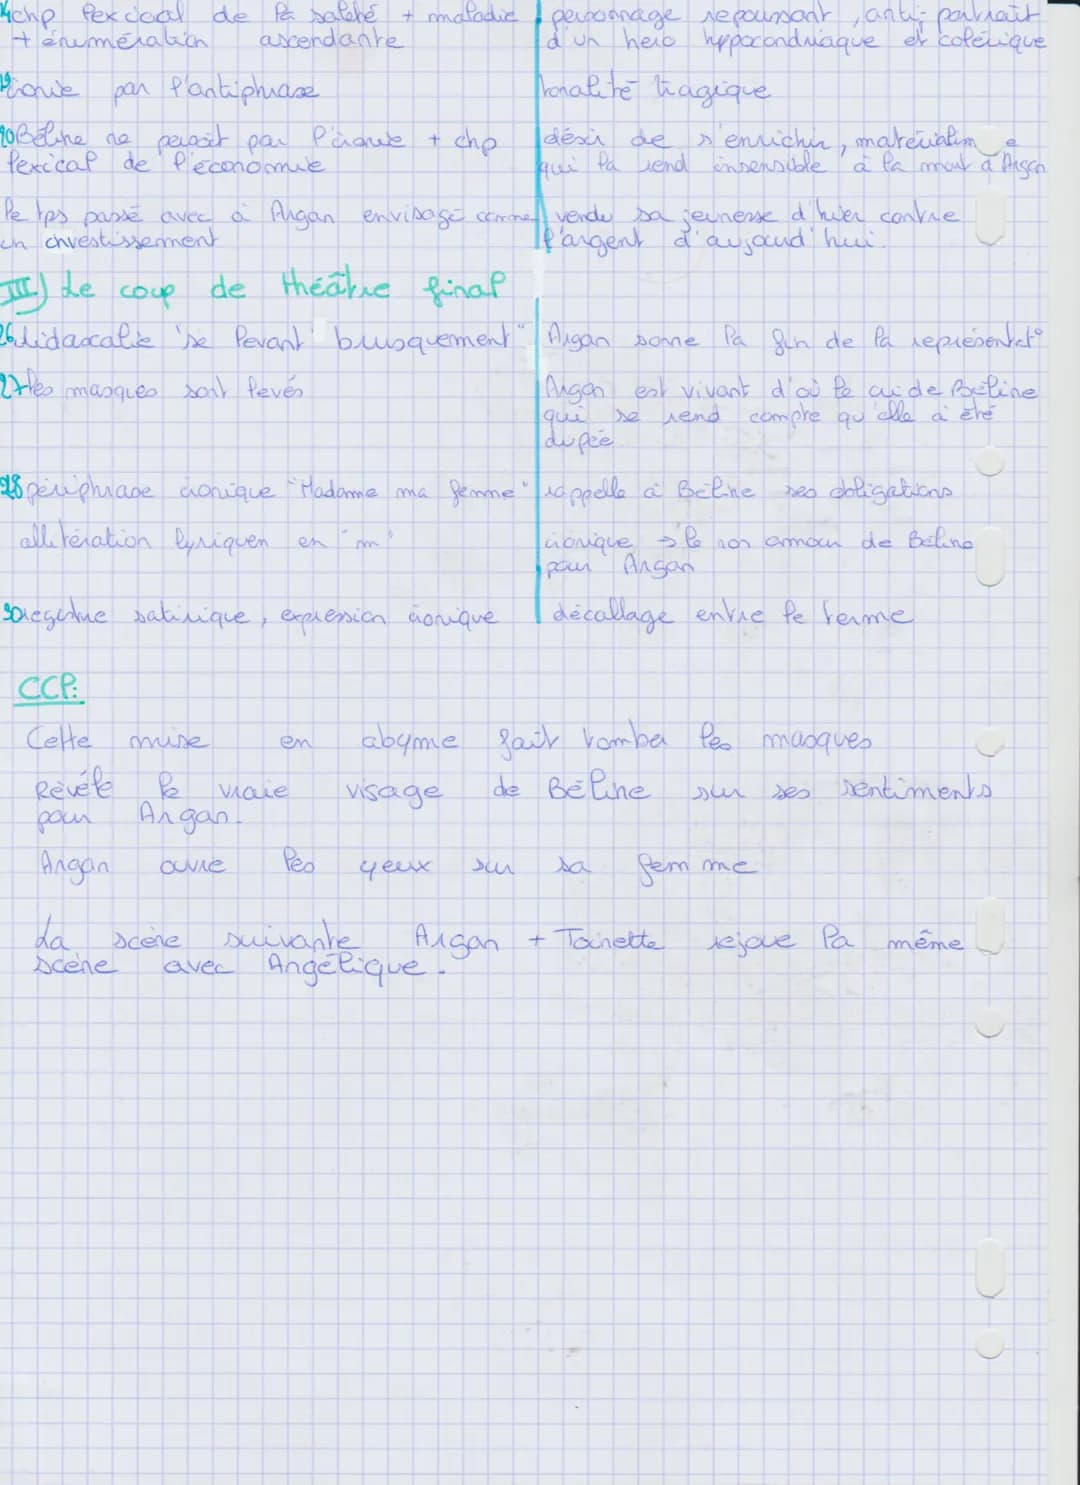 14 chp lexcical de la saleté + maladie
+ énumération ascendante
personnage repoussant, anti-portrait
d'un hero hypocondriaque et colérique
19 ironie par l'antiphrase
tonalité tragique
20 Béline ne perçoit pas l'ironie + chp
lexical de l'économie
désir de s'enrichir, matérialisme
qui la rend insensible à la mort d'Argan
le tps passé avec à Argan envisagé comme
un investissement
vendu sa jeunesse d'hier contre
l'argent d'aujourd'hui.
III) Le coup de théâtre final
26 didascalie "se levant brusquement"
Argan sonne la fin de la représentat°
27 les masques sont levés
Argan est vivant d'où le cri de Béline
qui se rend compte qu'elle a été
dupée
28 périphrase ironique "Madame ma femme"
rappelle à Béline ses obligations
allitération lyriquen en "m"
ironique → le non amour de Béline
pour Argan
30 registre satirique, expression ironique
décallage entre le terme
CCP:
Cette mise en abyme fait tomber les masques
Révéle le vraie visage de Béline sur ses sentiments
pour Argan.
Argan ouvre les yeux sur sa femme
La scène suivante Argan + Toinette rejoue la même
scène avec Angélique.